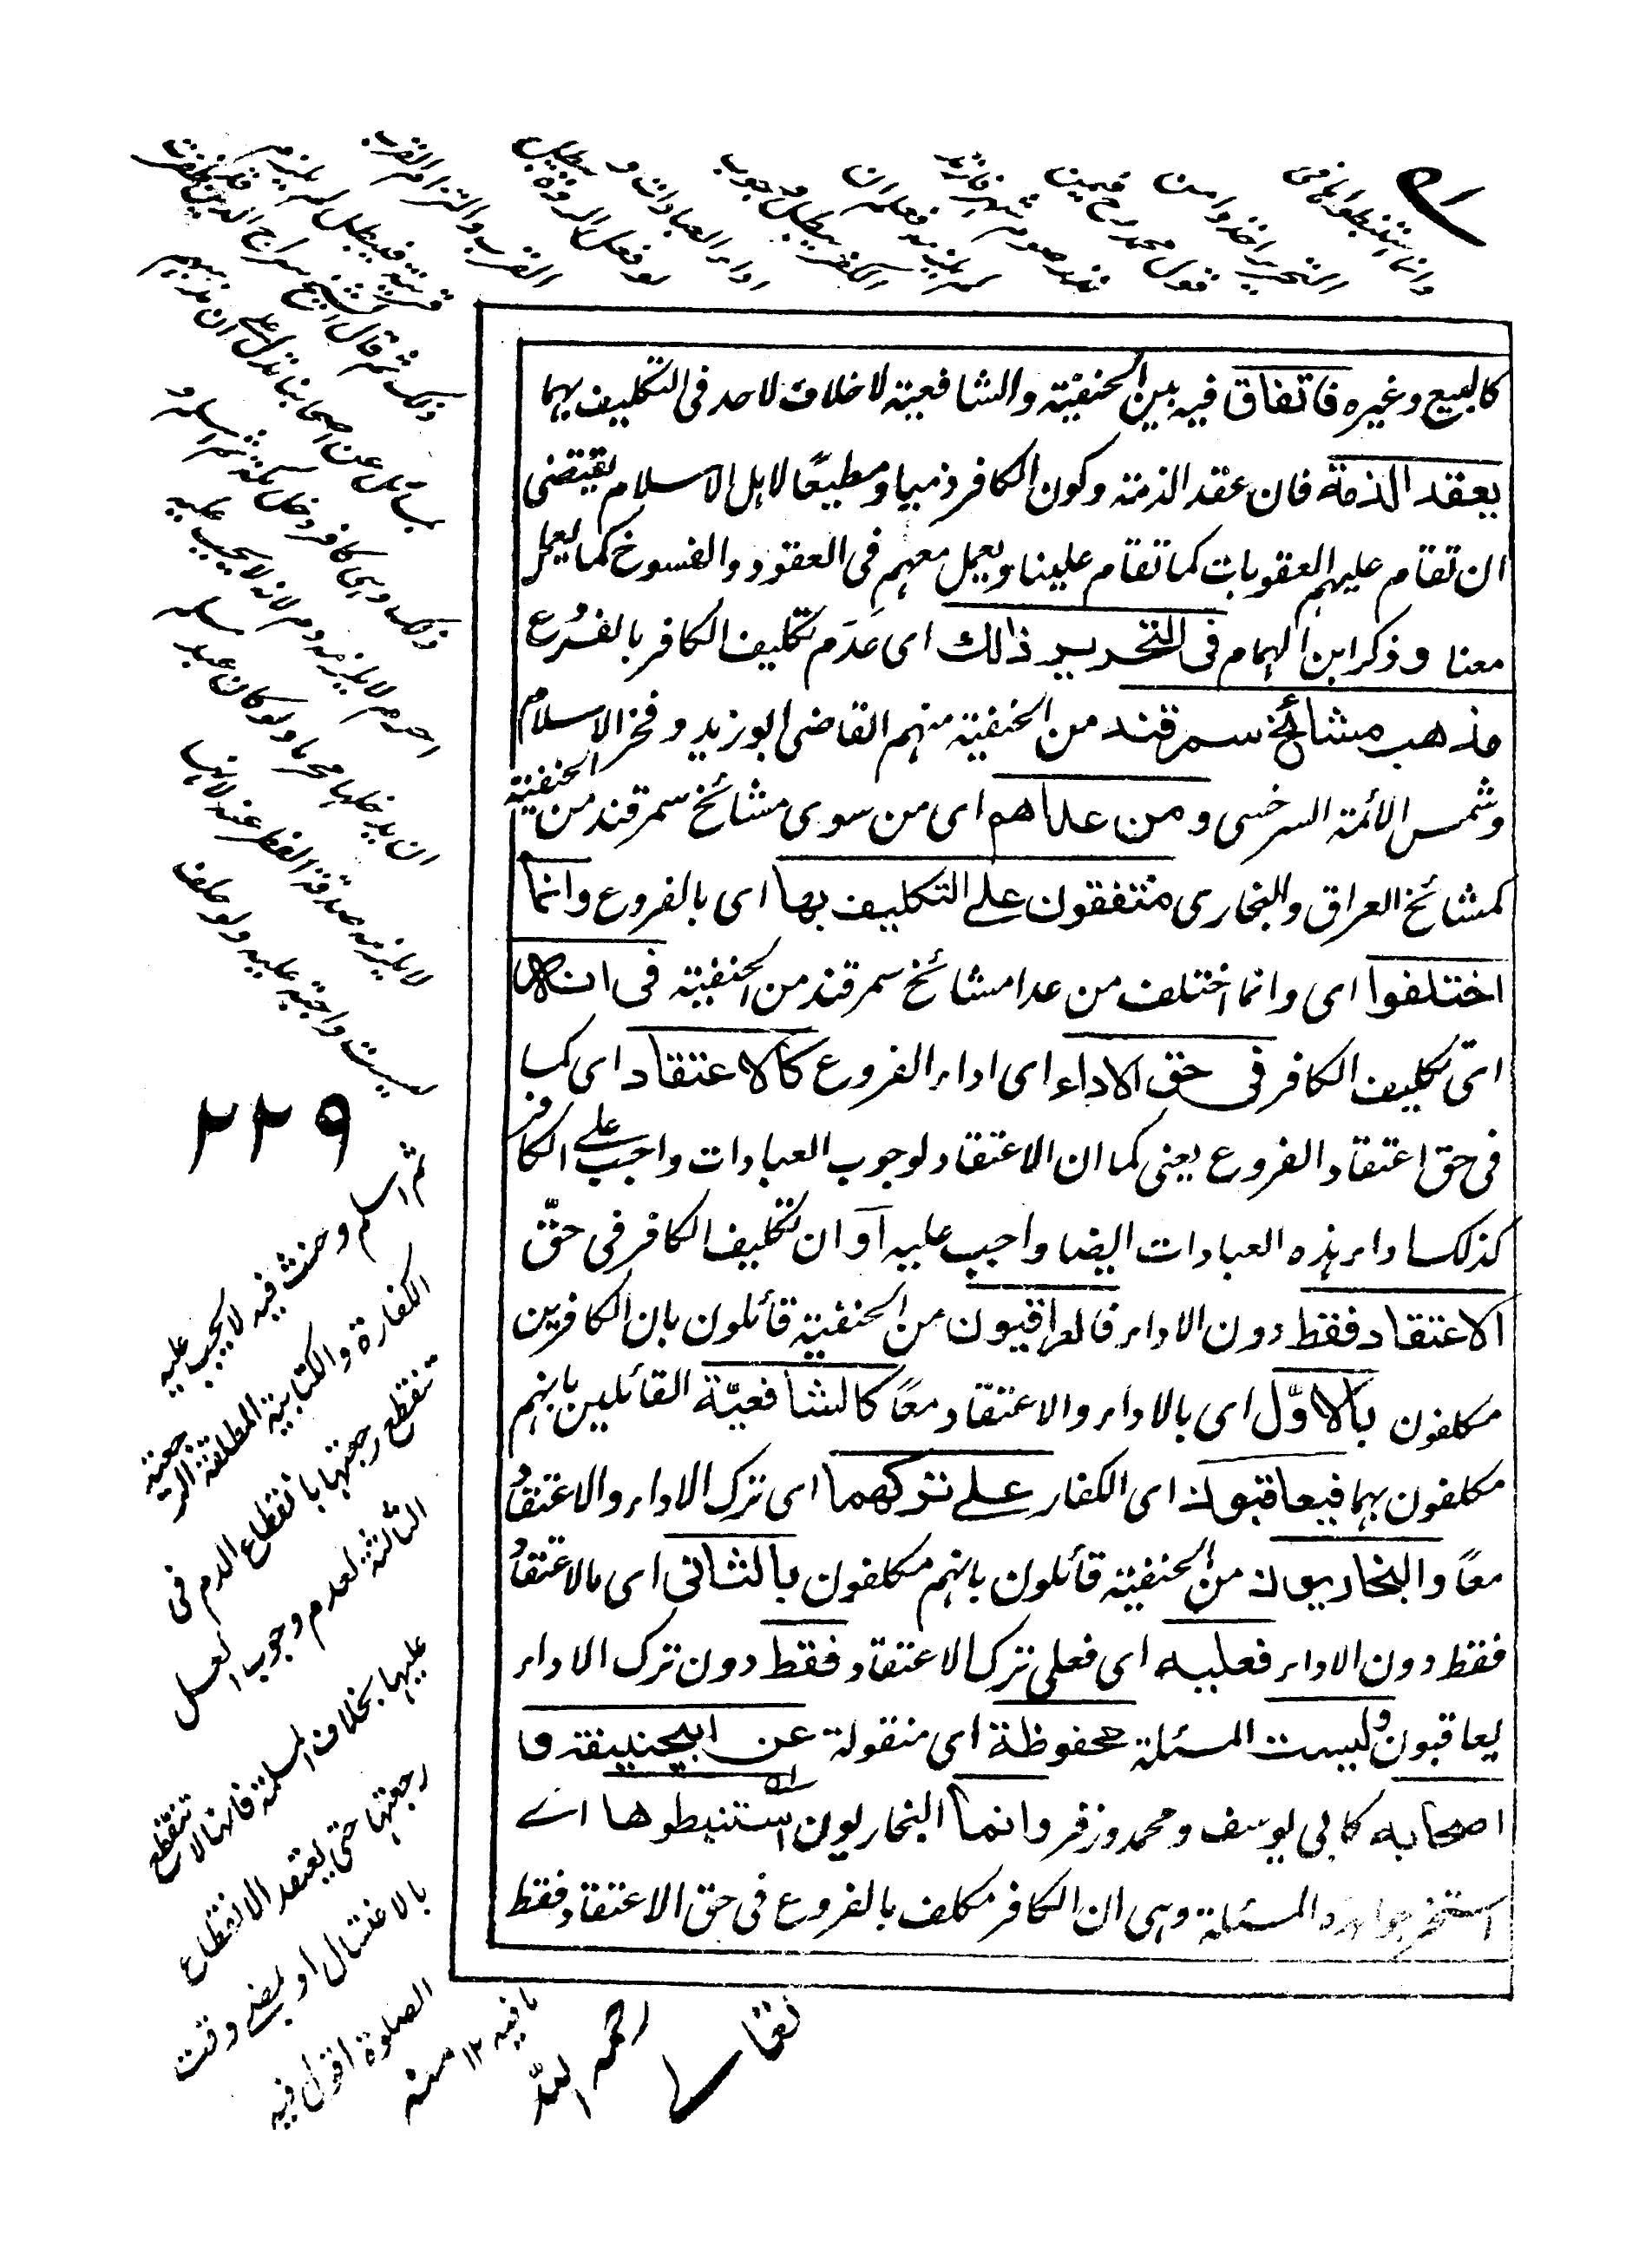 كالبيع وغيره فاتفاق فيه بين الحنفية والشافعية لا خلاف لاحد فى التكليف بهما
بعقد الذمة فان عقد الذمة وكون الكافر ذميا ومطيعًا لاهل الاسلام يقتضى
ان تقام عليهم العقوبات كما تقام علينا ويعمل معهم فى العقود والفسوخ كما يعمل
معنا وذكر ابن الهمام فى التحرير ذالك اى عدم تكليف الكافر بالفروع
مذهب مشائخ سمرقند من الحنفية منهم القاضى ابو زيد وفخر الاسلام
وشمس الائمة السرخسى ومن عداهم اى من سوى مشائخ سمرقند من الحنفية
كمشائخ العراق والبخارى متفقون على التكليف بها اى بالفروع وانما
اختلفوا اى وانما اختلف من عدا مشائخ سمرقند من الحنفية فى انه
اى تكليف الكافر فى حق الاداء اى اداء الفروع كالاعتقاد اى كما
فى حق اعتقاد الفروع يعنى كما ان الاعتقاد لوجوب العبادات واجب على الكافر
كذلك اداء هذه العبادات ايضا واجب عليه او ان تكليف الكافر فى حقّ
الاعتقاد فقط دون الاداء فالعراقيون من الحنفية قائلون بان الكافرين
مكلفون بالاوّل اى بالاداء والاعتقاد معًا كالشافعيّة القائلين بانهم
مكلفون بهما فيعاقبون اى الكفار على تركهما اى ترك الاداء والاعتقاد
معًا والبخاريون من الحنفية قائلون بانهم مكلفون بالثانى اى بالاعتقاد
فقط دون الاداء فعليه اى فعلى ترك الاعتقاد فقط دون ترك الاداء
يعاقبون وليست المسئلة محفوظة اى منقولة عن ابيحنيفة و
اصحابه كابى يوسف ومحمد وزفر وانما البخاريون استنبطوها اى
استخرجوا هذه المسئلة وهى ان الكافر مكلف بالفروع فى حق الاعتقاد فقط
وانما استنبطوها فى
التحرير اخذوا من
قول محمد رح فيمن
نذر صوم شهر فارتد
لم يلزمه فعلم ان
الكفر يبطل وجوب
اداء العبادات و
ثم قال الشيخ سراج الدين
لا يلزمه صدقة الفطر عنه لانها
ليست واجبة عليه ولو حلف
٢٢٩
ثم اسلم وحنث فيه لا يجب عليه
الكفارة والكتابية المطلقة الرجعية
تنقطع رجعتها بانقطاع الدم فى
الثالثة لعدم وجوب الغسل
عليها بخلاف المسلمة فانها لا تنقطع
رجعتها حتى يعتقد الانقطاع
بالاغتسال او بمضى وقت
الصلوة اقول فيه
ما فيه ١٢ منه
رحمه الله